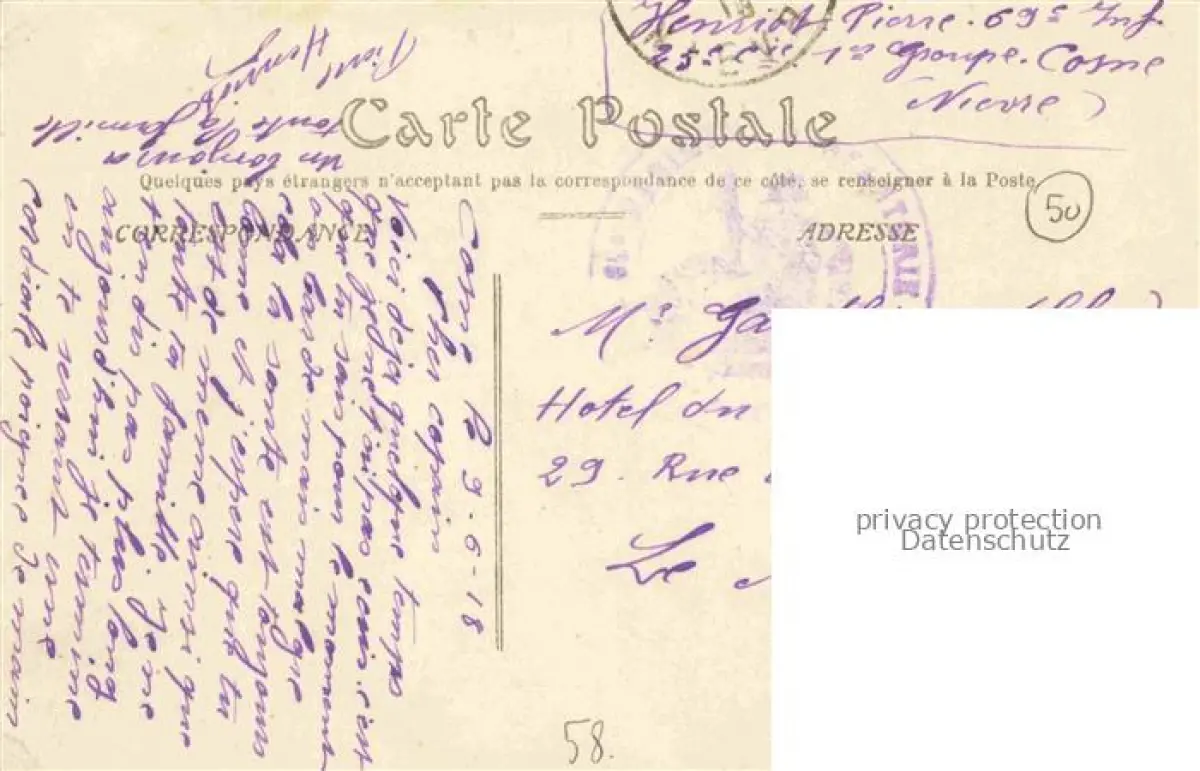 Henriot Pierre. 69e Inf
25e Cie. 1er Groupe. Cosne
Nievre)
Carte Postale
Quelques pays étrangers n'acceptant pas la correspondance de ce côté, se renseigner à la Poste
50
CORRESPONDANCE
ADRESSE
Cosne le 9-6-18
Cher copain
Voici déja quelque temps
que je ne t'ai pas ecris. c'est
que tu sais pour le moment
on a pas de mais malgre
cela la santé est toujours
bonne et j'espere que tu
est de meme ainsi que
toute ta famille je ne
t'en dis pas plus long
aujourd'hui je termine
en te serrant une
cordiale poignee de main
un bonjour a
toute la famille
Mr
Hotel du
29. Rue
Le
privacy protection
Datenschutz
58.